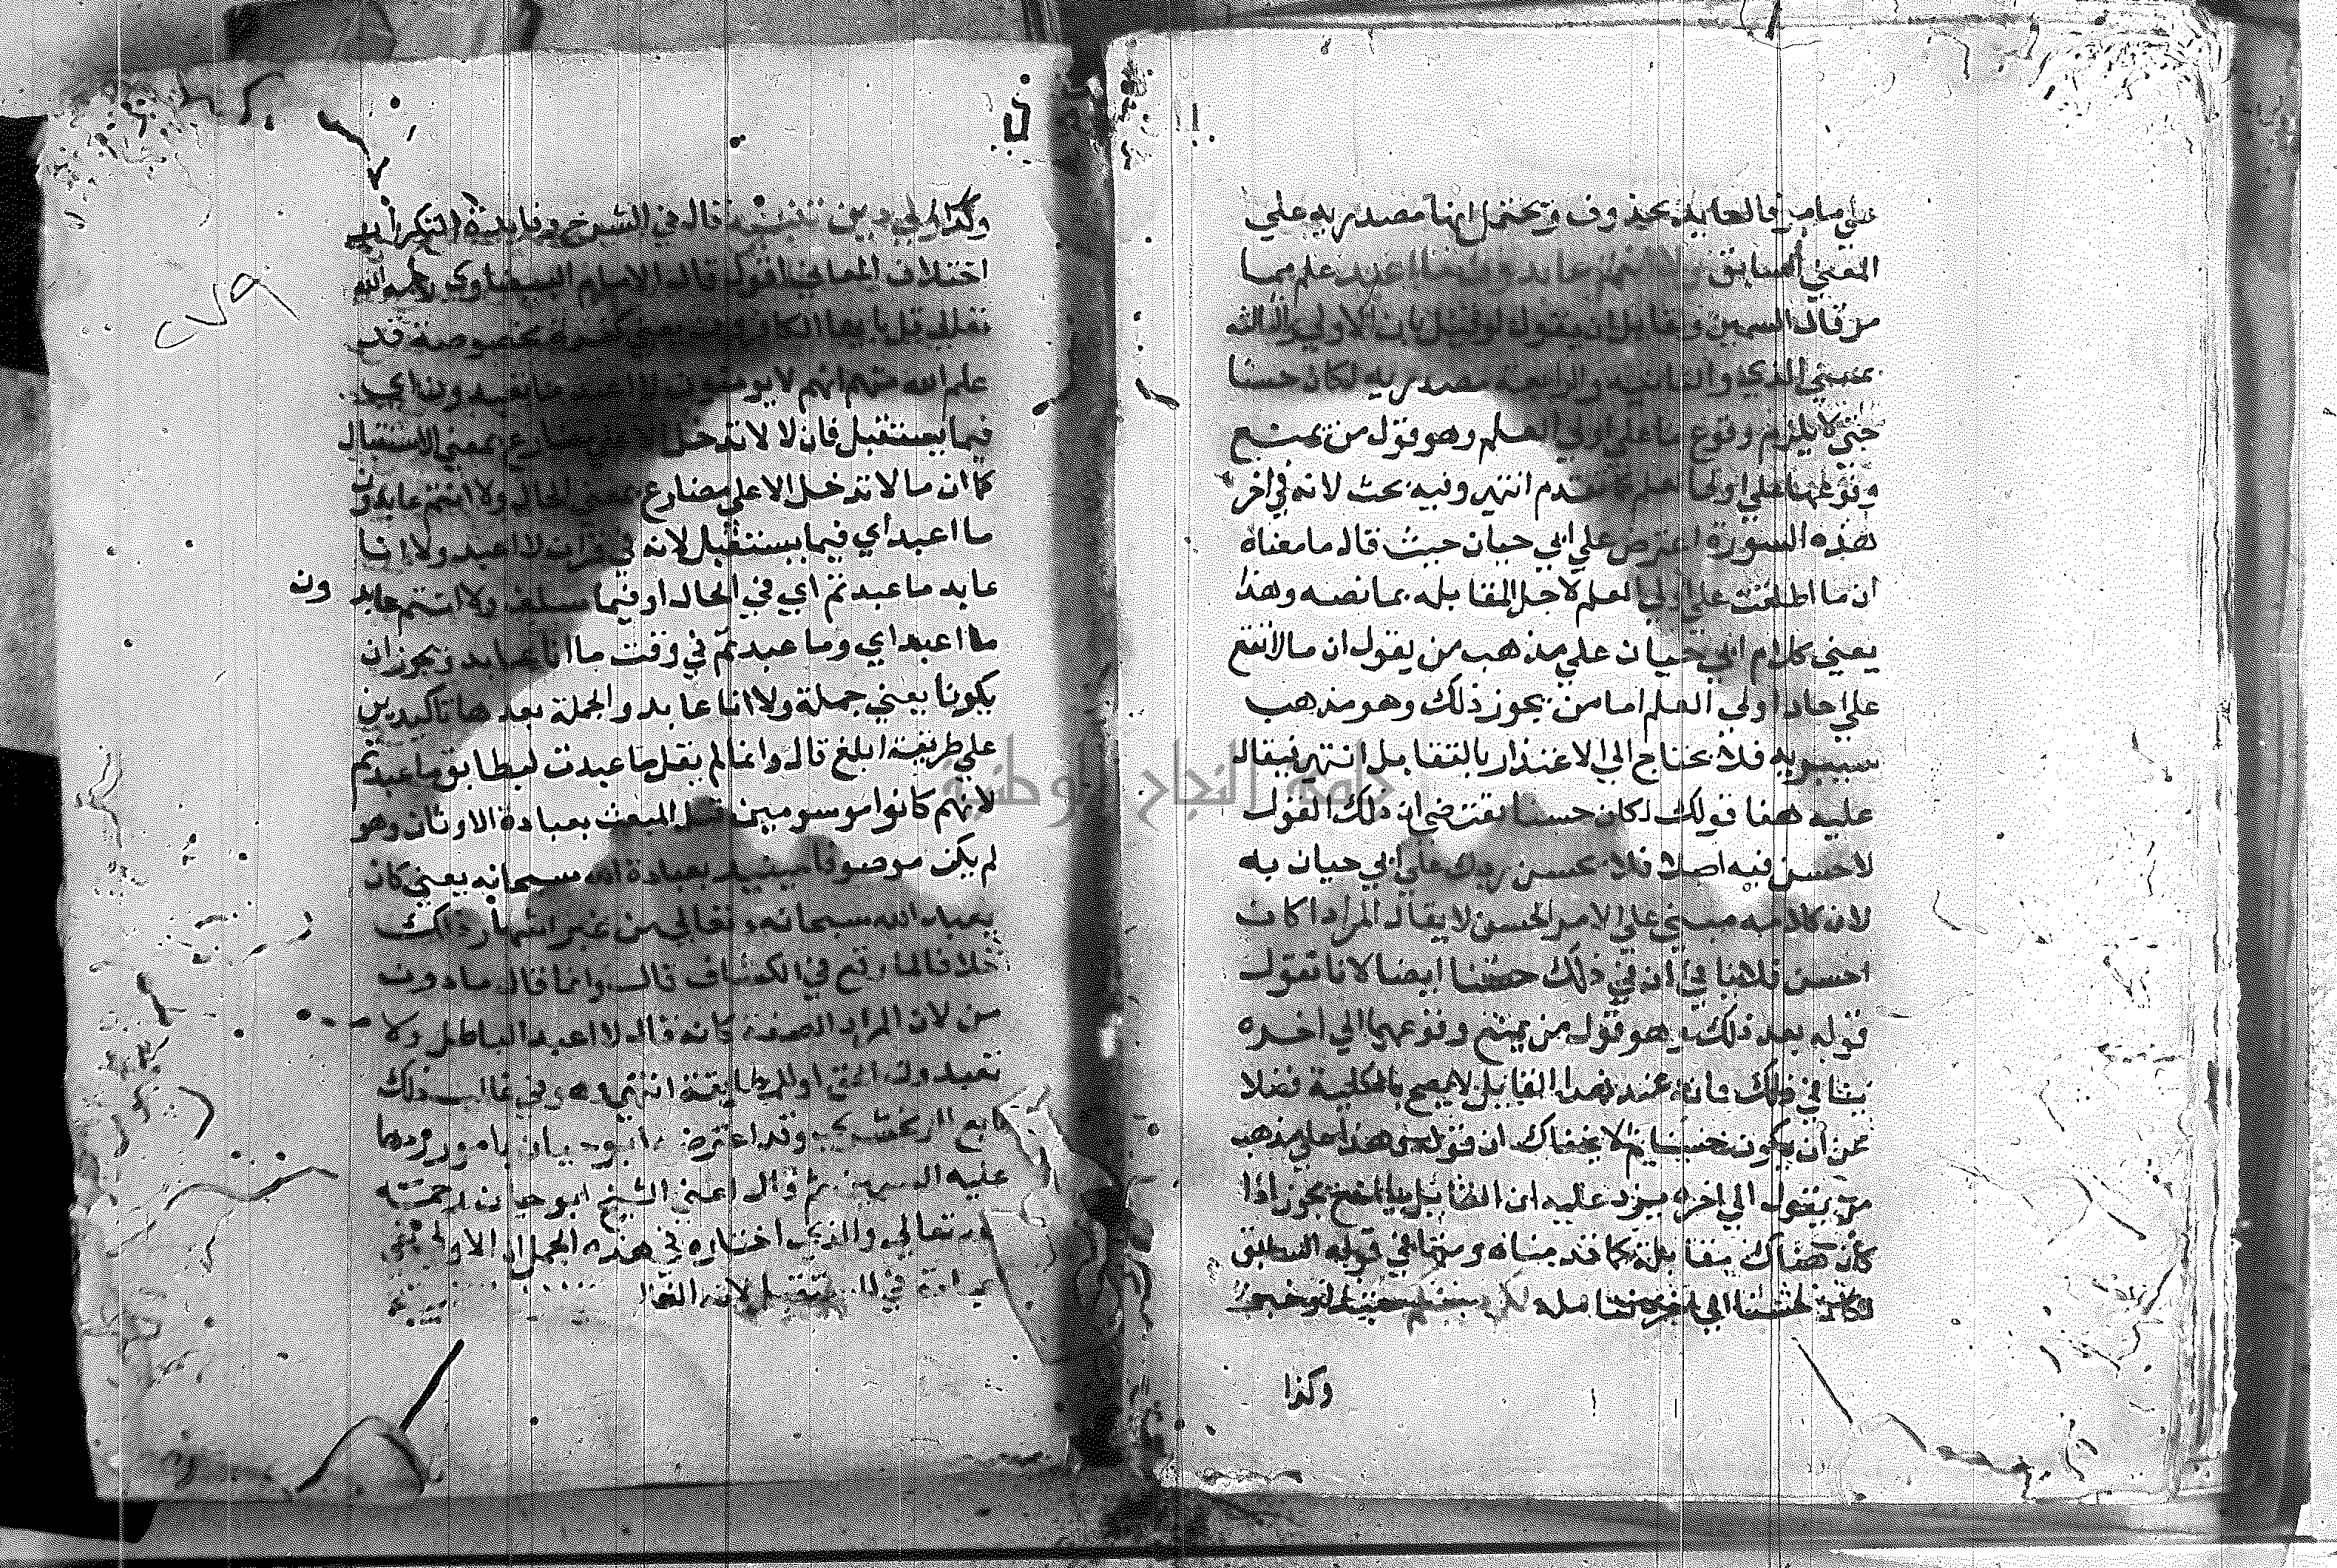 علي ما مر فالعايد محذوف ويحتمل انها مصدريه علي
المعني السابق ولا انتم عابدون ما اعبد علم مما
مر قال السمين ولقايل ان يقول لو قيل بان الاولي والثالثه
بمعني الذي والثانيه والرابعة مصدريه لكان حسنا
حتي لا يلزم وقوع ما علي اولي العلم وهو قول من يمنع
وقوعها علي اولي العلم كما تقدم انتهي وفيه بحث لانه في اخر
هذه السورة اعترض علي ابي حيان حيث قال ما معناه
ان ما اطلقت علي اولي العلم لاجل المقابله بما نصه وهذا
يعني كلام ابي حيان علي مذهب من يقول ان ما لا تقع
علي احاد اولي العلم اما من يجوز ذلك وهو مذهب
سيبويه فلا يحتاج الي الاعتذار بالتقابل انتهي فيقال
عليه هنا قولك لكان حسنا يقتضي ان ذلك القول
لا حسن فيه اصلا فلا يحسن ردك علي ابي حيان به
لان كلامه مبني علي الامر الحسن لا يقال المراد اكان
احسن فلا ينافي ان في ذلك حسنا ايضا لانا نقول
قوله بعد ذلك وهو قول من يمنع وقوعها الي اخره
ينافي ذلك فانه عند هذا القايل لا يصح بالكلية فضلا
عن ان يكون حسنا ثم لا يخفاك ان قوله هذا علي مذهب
من يقول الي اخره يرد عليه ان القايل بالمنع يجوز اذا
كان هناك مقابلة كما قدمناه قوله السابق
لكان حسنا الي اخره
وكذا
ولكم دينكم قال في الشرح وفايدة التكرار
اختلاف المعاني اقول قال الامام البيضاوي رحمه الله
تعالي قل يا ايها الكافرون يعني كفرة مخصوصة قد
علم الله منهم انهم لا يومنون لا اعبد ما تعبدون اي
فيما يستقبل فان لا لا تدخل الا علي مضارع بمعني الاستقبال
كما ان ما لا تدخل الا علي مضارع بمعني الحال ولا انتم عابدون
ما اعبد اي فيما يستقبل لانه في قران لا اعبد ولا انا
عابد ما عبدتم اي في الحال او فيما سلف ولا انتم عابدون
ما اعبد اي وما عبدتم في وقت ما انا عابد ويجوز ان
يكونا يعني جملة ولا انا عابد والجملة بعدها تاكيدين
علي طريقة ابلغ قال وانما لم يقل ما عبدت ليطابق ما عبدتم
لانهم كانوا موسومين قبل المبعث بعبادة الاوثان وهو
لم يكن موصوفا حينيذ بعبادة الله سبحانه يعني كان
يعبد الله سبحانه وتعالي من غير اشهار ذلك
خلافا لما وقع في الكشاف قال وانما قال ما دون
من لان المراد الصفة كانه قال لا اعبد الباطل ولا
تعبدون الحق او للمطابقة انتهي وهو في غالب ذلك
تابع الزمخشري وقد اعترضه ابو حيان بامور ردها
عليه السمين ثم قال اعني الشيخ ابو حيان رحمه
الله تعالي والذي اختاره في هذه الجمل ان الاولي نفي
عبادته في المستقبل لان الغالب